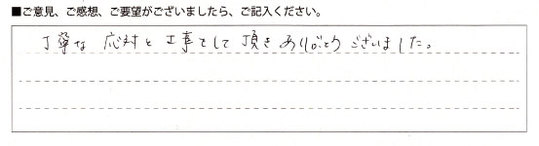 ■ご意見、ご感想、ご要望がございましたら、ご記入ください。
丁寧な 応対と 工事をして 頂き ありがとう ございました。